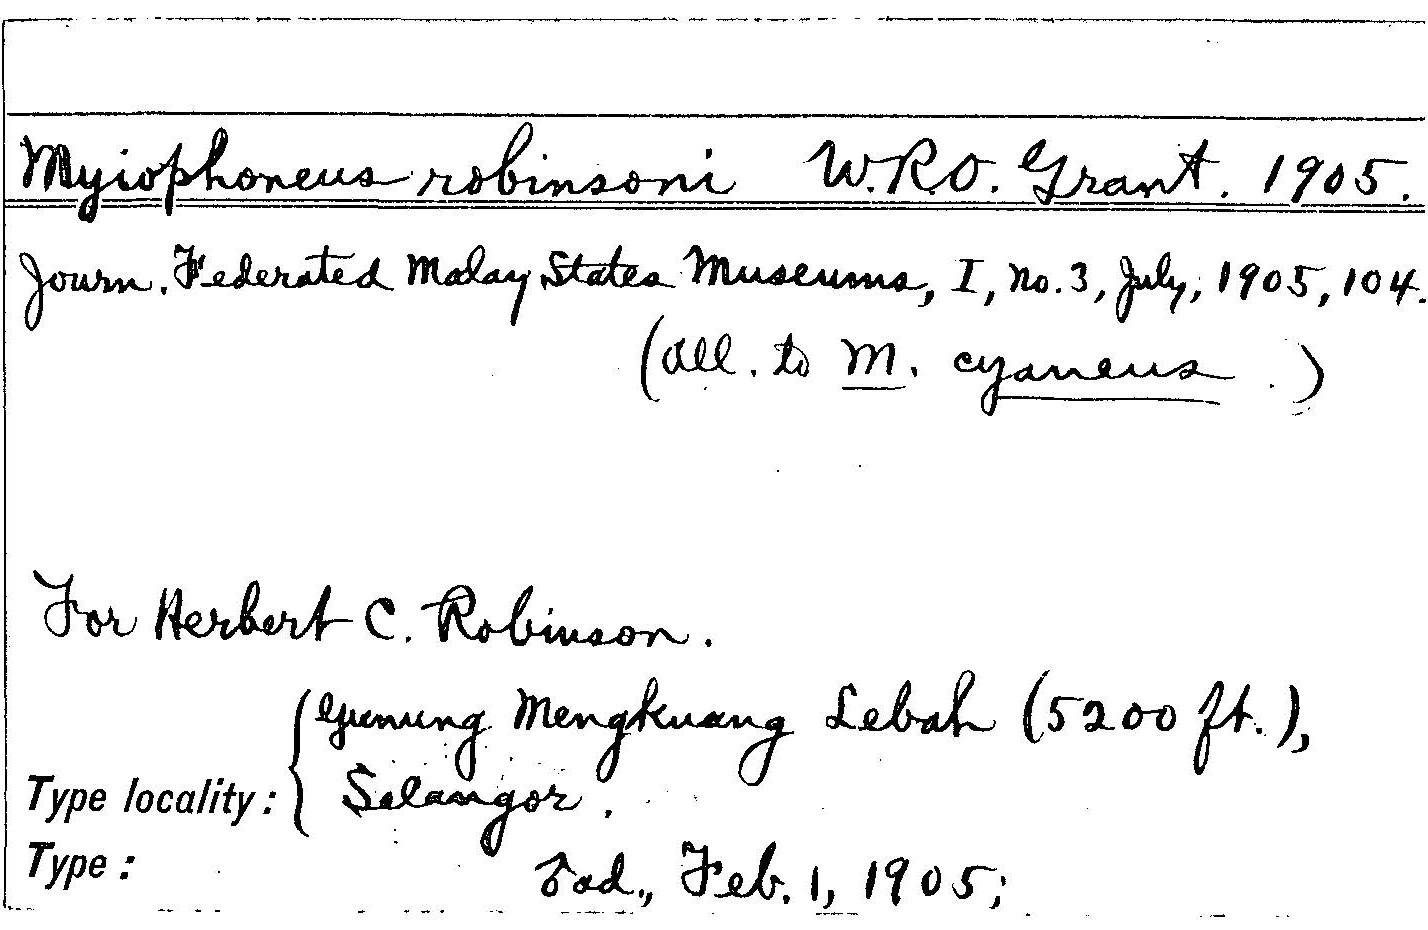 Myiophoneus robinsoni W.R.O. Grant. 1905.
Journ. Federated Malay States Museums, I, No. 3, July, 1905, 104.
(All. to M. cyaneus .)
For Herbert C. Robinson.
Gunung Mengkuang Lebah (5200 ft.),
Type locality: Selangor.
Type: ♂ad., Feb. 1, 1905;